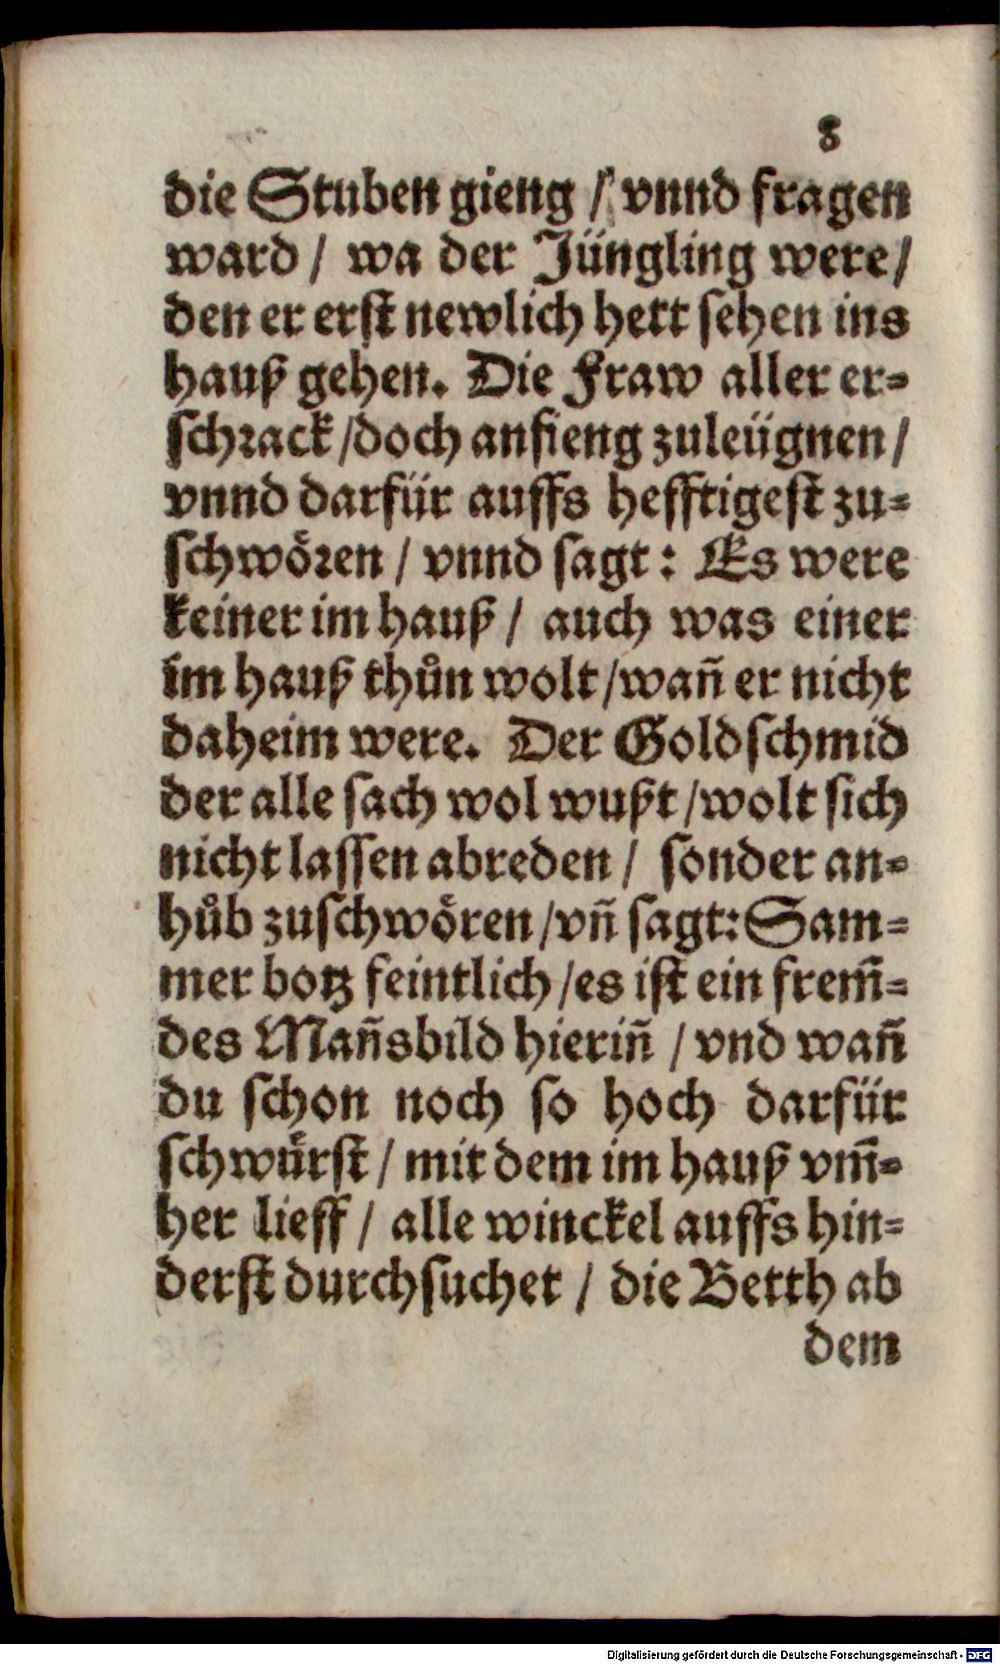 8
die Stuben gieng / vnnd fragen
ward / wa der Jüngling were /
den er erſt newlich hett ſehen ins
hauß gehen. Die Fraw aller er⸗
ſchꝛack / doch anfieng zuleügnen /
vnnd darfür auffs hefftigeſt zu⸗
ſchwoͤꝛen / vnnd ſagt: Es were
keiner im hauß / auch was einer
im hauß thůn wolt / wañ er nicht
daheim were. Der Goldſchmid
der alle ſach wol wußt / wolt ſich
nicht laſſen abreden / ſonder an⸗
hůb zuſchwoͤren / vñ ſagt: Sam⸗
mer botz feintlich / es iſt ein frem̃⸗
des Mañsbild hieriñ / vnd wañ
du ſchon noch ſo hoch darfür
ſchwuͤrſt / mit dem im hauß vm̃⸗
her lieff / alle winckel auffs hin⸗
derſt durchſuchet / die Betth ab
dem
Digitalisierung gefördert durch die Deutsche Forschungsgemeinschaft - DFG